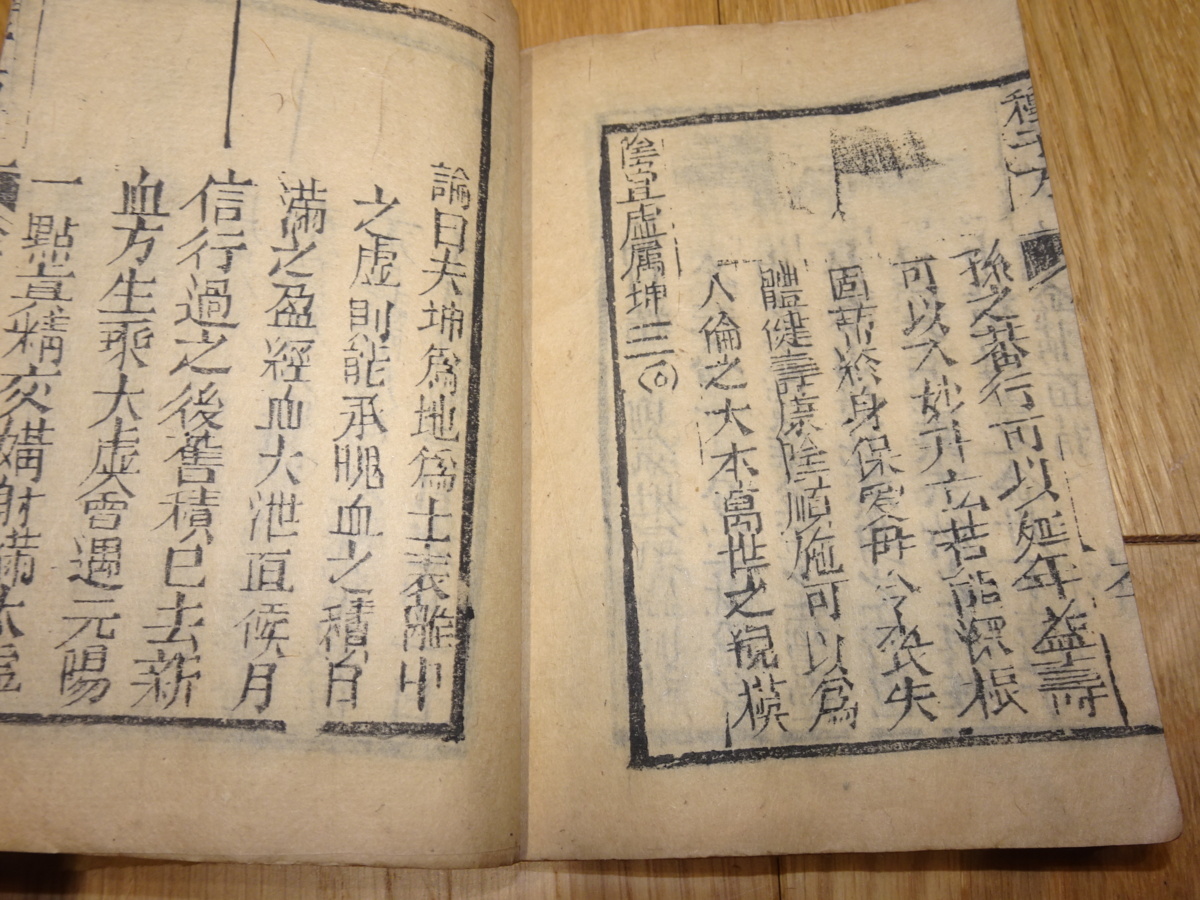 種子方
孫之蕃衍可以延年益壽
可以入妙升玄若能深根
固蒂終身保愛毋令喪失
體健壽康陰順施可以為
人倫之大本萬世之規模
陰宜虛属坤☷
論曰夫坤為地為土表離中
之虛則能承貺血之積自
滿之盈經血大泄直候月
信行過之後舊積已去新
血方生乘大虛會遇元陽
一點真精交媾射滿太虛